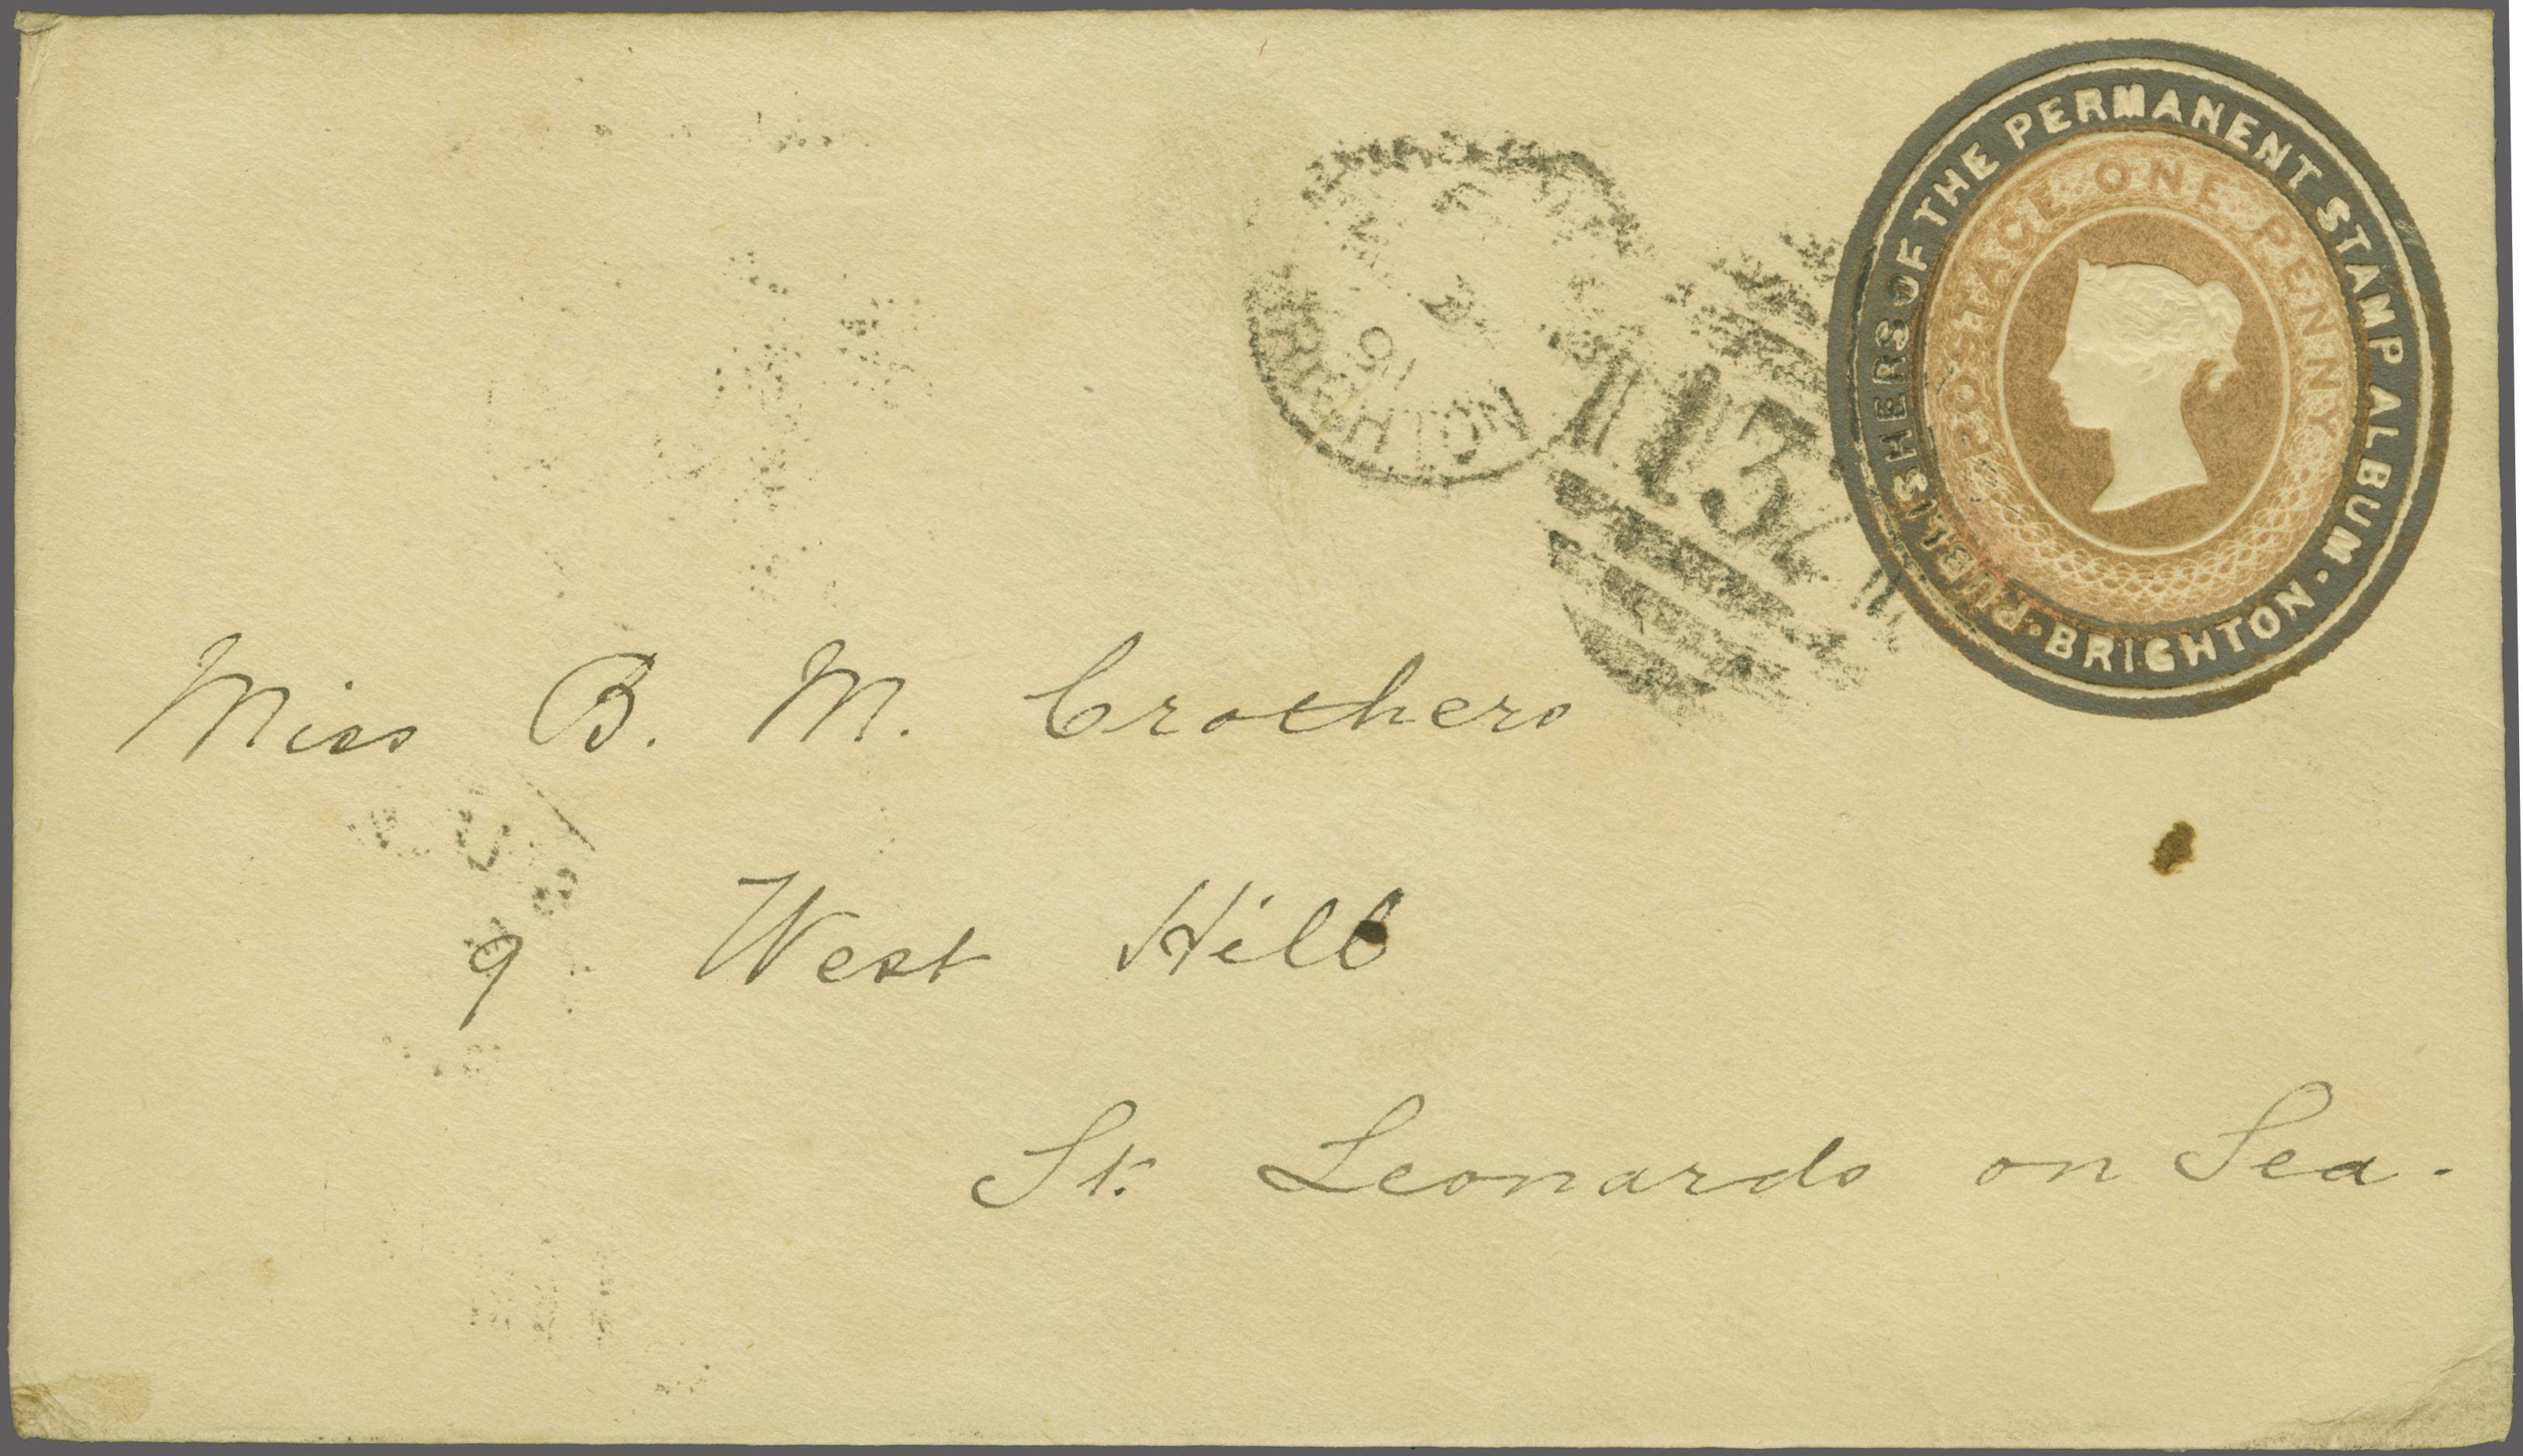 PUBLISHERS OF THE PERMANENT STAMP ALBUM · BRIGHTON ·
POSTAGE ONE PENNY
BRIGHTON
91
132
Miss B. M. Crothers
9 West Hill
St. Leonards on Sea.